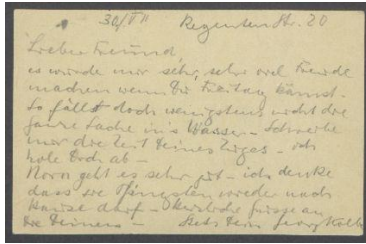 30/VII Regenten Str. 20
Lieber Freund,
es würde mir sehr, sehr viel Freude
machen wenn Du Freitag kämst.
So fällt doch wenigstens nicht die
ganze Sache ins Wasser – Schreibe
mir die Zeit Deines Zuges – ich
hole Dich ab –
geht es sehr gut – ich denke
dass sie wieder nach
Hause darf – Herzliche Grüsse an
die Deinen – Stets Dein Georg Kolbe